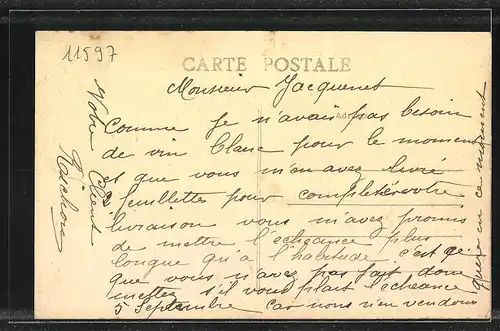 11597
CARTE POSTALE
Monsieur Jacquenet
Comme je n'avais pas besoin
de vin blanc pour le moment
et que vous m'en avez livré
2 feuillettes pour compléter votre
livraison vous m'avez promis
de mettre l'échéance plus
longue qu'à l'habitude, c'est ce
que vous n'avez pas fait donc
mettez s'il vous plait l'échéance
5 Septembre car nous n'en vendons
guère en ce moment
Votre Client